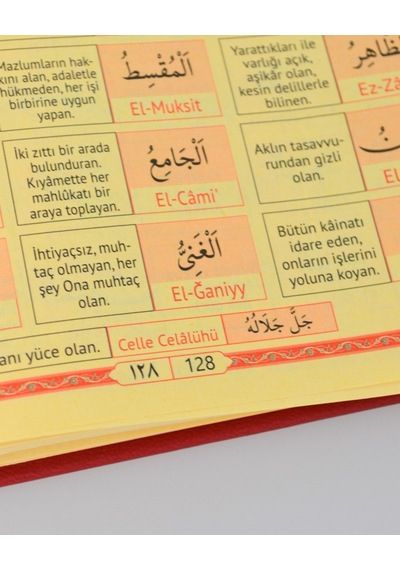 Mazlumların hak-
kını alan, adaletle
hükmeden, her işi
birbirine uygun
yapan.
اَلْمُقْسِطُ
El-Muksit
Yarattıkları ile
varlığı açık,
aşikâr olan,
kesin delillerle
bilinen.
İki zıttı bir arada
bulunduran.
Kıyâmette her
mahlûkatı bir
araya toplayan.
اَلْجَامِعُ
El-Câmi'
Aklın tasavvu-
rundan gizli
olan.
İhtiyaçsız, muh-
taç olmayan, her
şey Ona muhtaç
olan.
اَلْغَنِىُّ
El-Ğaniyy
Bütün kâinatı
idare eden,
onların işlerini
yoluna koyan.
yüce olan.
Celle Celâlühü
جَلَّ جَلَالُهُ
١٢٨ 128